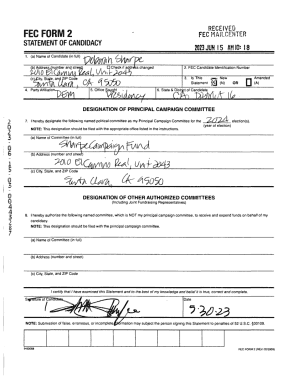 FEC FORM 2
STATEMENT OF CANDIDACY
RECEIVED
FEC MAIL CENTER
2023 JUN 15 AM 10: 18
1. (a) Name of Candidate (in full)
Deborah Sharpe
(b) Address (number and street) Check if address changed
2010 El Camino Real, Unit 2043
2. FEC Candidate Identification Number
(c) City, State, and ZIP Code
Santa Clara, CA 95050
3. Is This Statement New (N) OR Amended (A)
4. Party Affiliation
DEM
5. Office Sought
Presidency
6. State & District of Candidate
CA District 16
DESIGNATION OF PRINCIPAL CAMPAIGN COMMITTEE
7. I hereby designate the following named political committee as my Principal Campaign Committee for the 2024 election(s).
(year of election)
NOTE: This designation should be filed with the appropriate office listed in the instructions.
(a) Name of Committee (in full)
Sharpe Campaign Fund
(b) Address (number and street)
2010 El Camino Real, Unit 2043
(c) City, State, and ZIP Code
Santa Clara, CA 95050
DESIGNATION OF OTHER AUTHORIZED COMMITTEES
(Including Joint Fundraising Representatives)
8. I hereby authorize the following named committee, which is NOT my principal campaign committee, to receive and expend funds on behalf of my candidacy.
NOTE: This designation should be filed with the principal campaign committee.
(a) Name of Committee (in full)
(b) Address (number and street)
(c) City, State, and ZIP Code
I certify that I have examined this Statement and to the best of my knowledge and belief it is true, correct and complete.
Signature of Candidate
Date
5-30-23
NOTE: Submission of false, erroneous, or incomplete information may subject the person signing this Statement to penalties of 52 U.S.C. §30109.